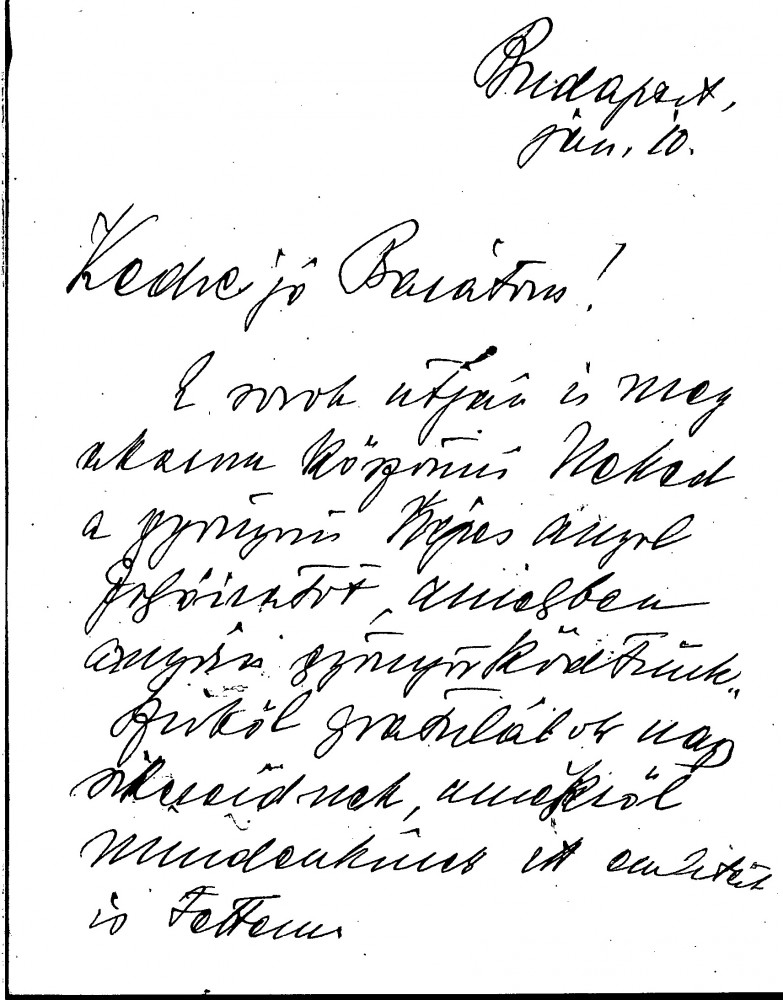 Budapest,
jan. 10.
Kedve jó Barátom!
E sorok útján is meg
akarom köszönni Neked
a gyönyörű képes angol
folyóiratot, amelyben
annyira gyönyörködtünk.
Szivből gratulálok nagy
sikereidnek, amelyekről
mindenkinek itt említést
is tettem.